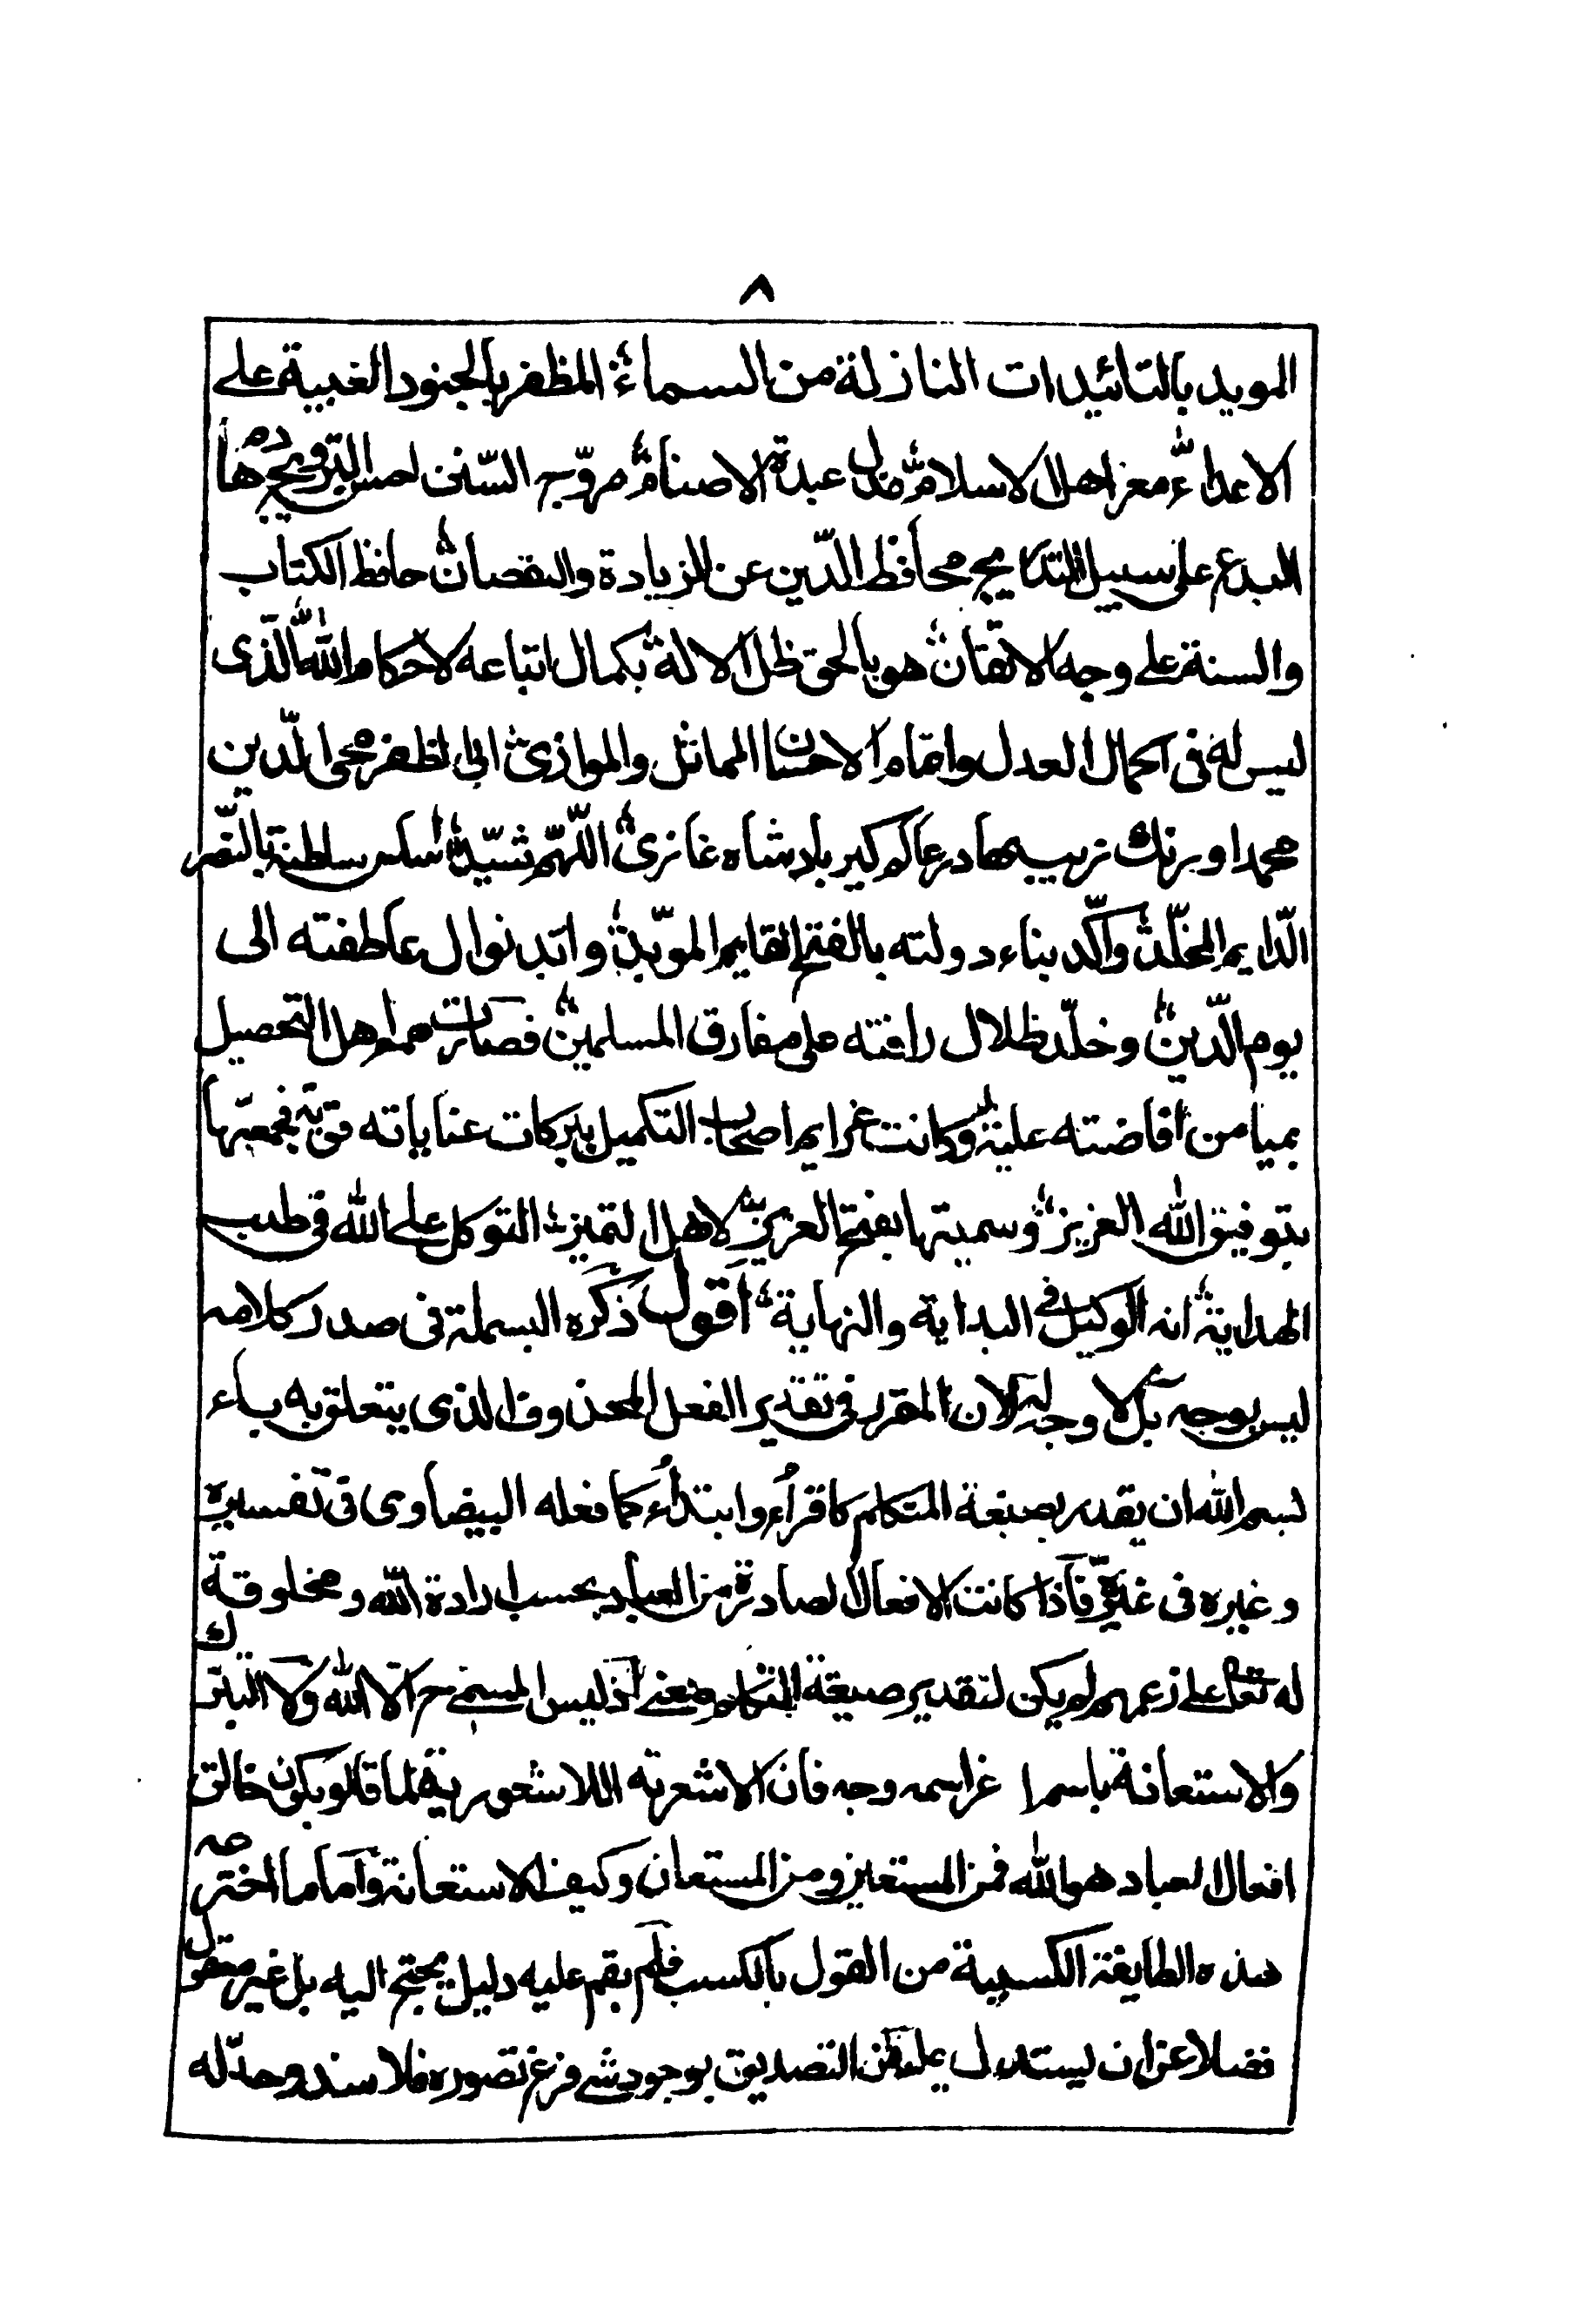 ٨
المويد بالتائيدات النازلة من السماء المظفر بالجنود الغيبية على
الاعداء معز اهل الاسلام مذل عبدة الاصنام مروّج السّنن احسن الترويج هادم
البدع على سبيل التدا محافظ الدّين عن الزيادة والنقصان حافظ الكتاب
والسنة على وجه الاتقان هو بالحق ظل الاله بكمال اتباعه لاحكام الله الّذى
ليس له فى اكمال العدل واتمام الاحسان المماثل والموازى ابى المظفر محى الدّين
محمد اورنك زيب بهادر عالم كير بادشاه غازى اللّهم شيّد اساس سلطنته بالنّصر
الدّايم المخلّد واكّد بناء دولته بالفتح القايم المويّد وابد نوال عاطفته الى
يوم الدّين وخلّد ظلال رافته على مفارق المسلمين فصارت همم اهل التحصيل
بميامن افاضته علية وكانت عزايم اصحاب التكميل ببركات عناياته قوية فجمعتها
بتوفيق الله العزيز وسميتها بفتح العزيز لاهل التميز التوكل على الله فى طلب
الهداية انه الوكيل فى البداية والنهاية اقول ذكره البسملة فى صدر كلامه
ليس بوجه بل لا وجه له لان المقرر فى تقدير الفعل المحذوف الذى يتعلق به باء
بسم الله ان يقدر بصيغة المتكلم كاقرأ وابتدأ كما فعله البيضاوى فى تفسيره
وغيره فى غيره فاذا كانت الافعال الصادرة من العباد بحسب ارادة الله ومخلوقة
له تعالى على زعمهم لم يكن لتقدير صيغة المتكلم معنى اذ ليس المسمى ح الا الله ولا التبرك
والاستعانة باسم اخر اسمه وجه فان الاشعرية اللاشعورية لما قالوا بكون خالق
افعال العباد هو الله فمن المستعين ومن المستعان وكيف الاستعانة واما ما اخترعه
هذه الطايفة الكسبية من القول بالكسب فلم يقم عليه دليل يحتج اليه بل غير معقول
فضلا عن ان يستدل عليه فان التصديق بوجود شى فرع تصوره فلا سند وحدّ له